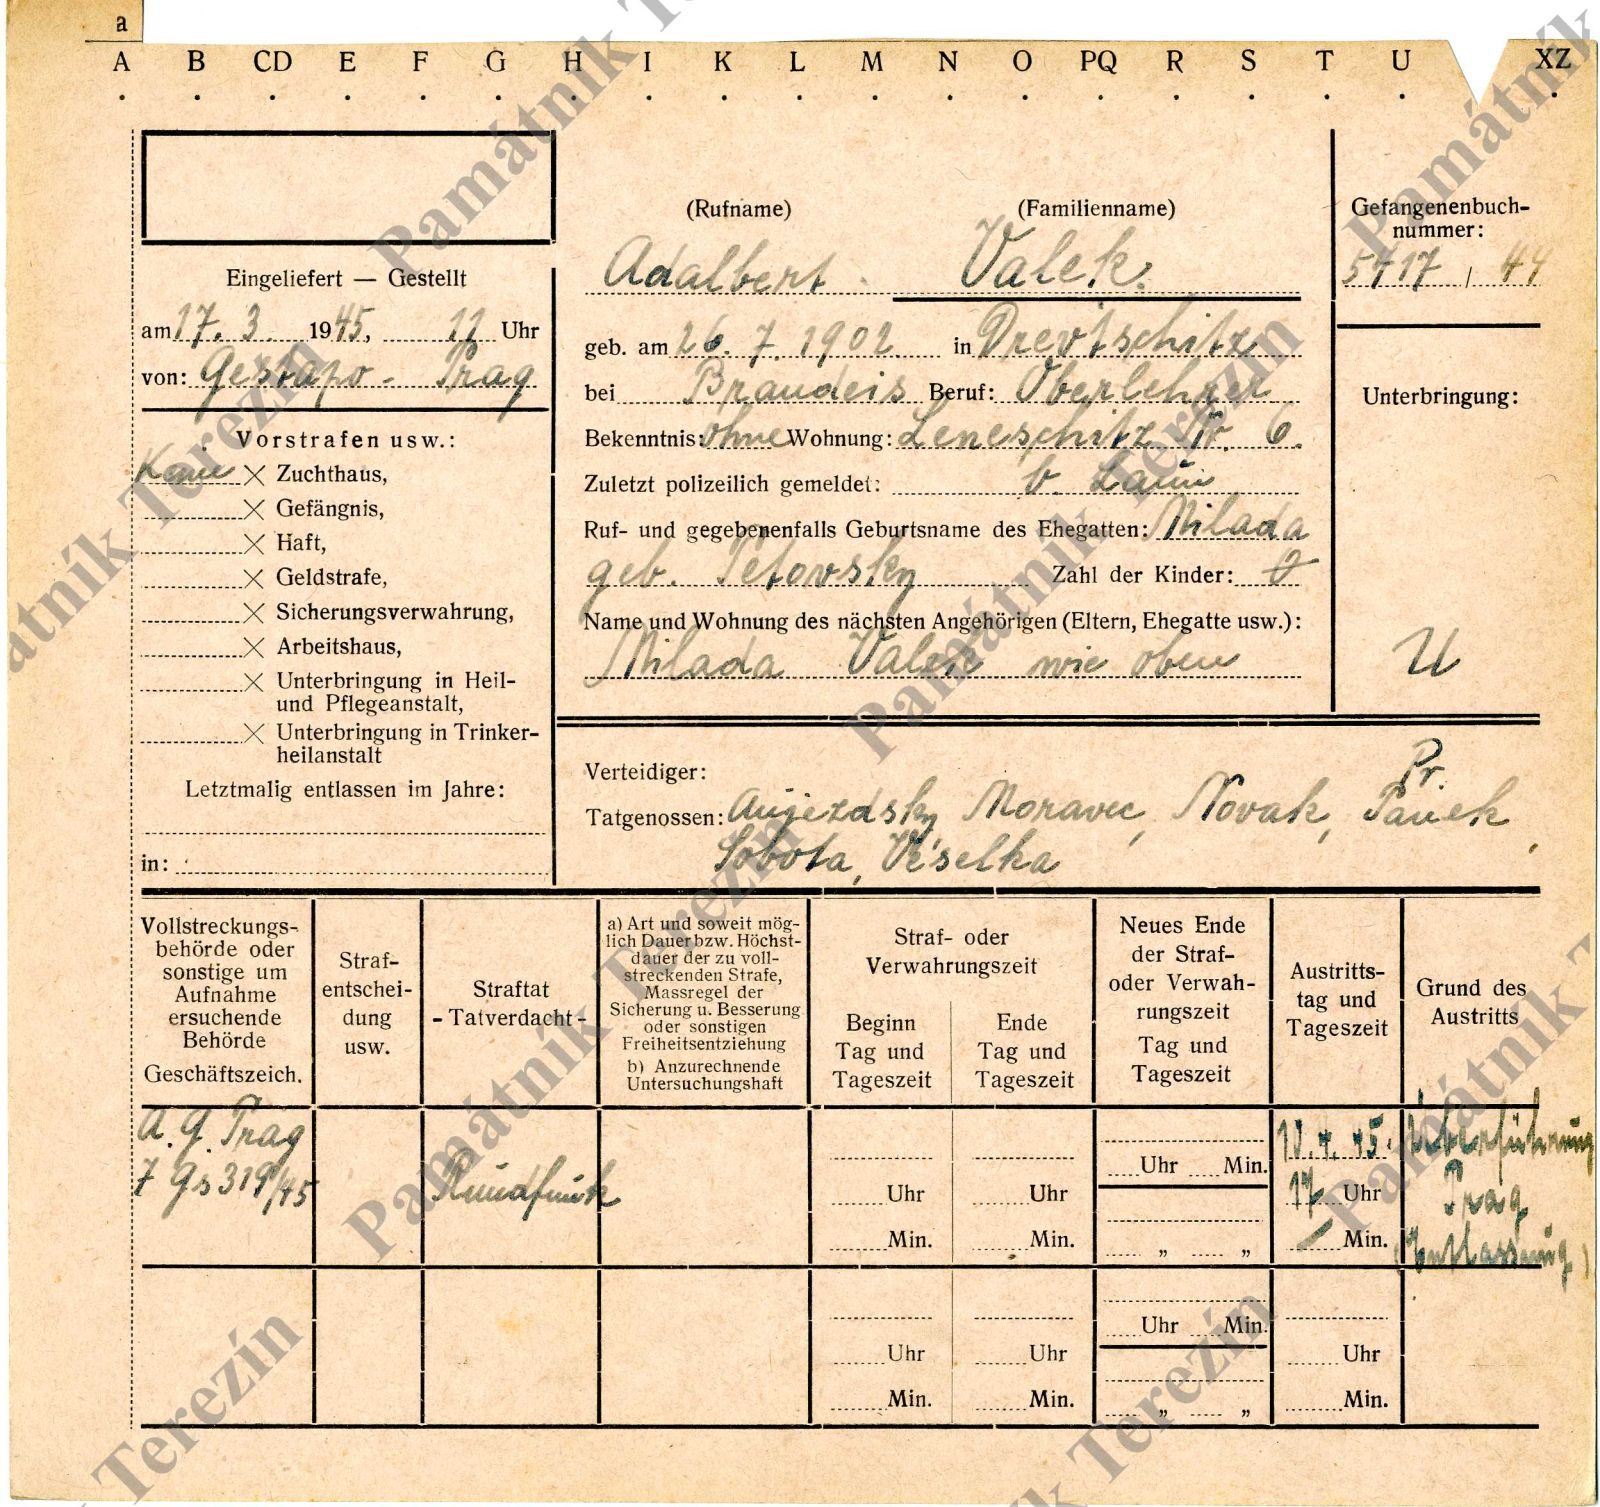 a
A B CD E F G H I K L M N O PQ R S T U XZ
(Rufname) (Familienname)
Adalbert Valek.
Gefangenenbuch-
nummer:
5417 / 44
Eingeliefert — Gestellt
am 17. 3. 1945, 11 Uhr
von: Gestapo - Prag
geb. am 26. 7. 1902. in Drevtschitz
bei Brandeis Beruf: Oberlehrer
Bekenntnis: ohne Wohnung: Leneschitz Nr. 6.
Zuletzt polizeilich gemeldet: b. Laun
Ruf- und gegebenenfalls Geburtsname des Ehegatten: Milada
geb. Petovsky Zahl der Kinder: 0
Name und Wohnung des nächsten Angehörigen (Eltern, Ehegatte usw.):
Milada Valek wie oben
Unterbringung:
U
Vorstrafen usw.:
Keine × Zuchthaus,
× Gefängnis,
× Haft,
× Geldstrafe,
× Sicherungsverwahrung,
× Arbeitshaus,
× Unterbringung in Heil-
und Pflegeanstalt,
× Unterbringung in Trinker-
heilanstalt
Letztmalig entlassen im Jahre:
in:
Verteidiger:
Pr.
Tatgenossen: Aujezdsky, Moravec, Novak, Panek,
Sobota, Veselka
Vollstreckungs-
behörde oder
sonstige um
Aufnahme
ersuchende
Behörde
Geschäftszeich.
Straf-
entschei-
dung
usw.
Straftat
- Tatverdacht -
a) Art und soweit mög-
lich Dauer bzw. Höchst-
dauer der zu voll-
streckenden Strafe,
Massregel der
Sicherung u. Besserung
oder sonstigen
Freiheitsentziehung
b) Anzurechnende
Untersuchungshaft
Straf- oder
Verwahrungszeit
Beginn
Tag und
Tageszeit
Ende
Tag und
Tageszeit
Neues Ende
der Straf-
oder Verwah-
rungszeit
Tag und
Tageszeit
Austritts-
tag und
Tageszeit
Grund des
Austritts
A. G. Prag
7 Gs 319/45
Rundfunk
Uhr
Min.
Uhr
Min.
Uhr Min.
„ „
10. 4. 45.
17 Uhr
— Min.
Überführung
Prag
(Entlassung)
Uhr
Min.
Uhr
Min.
Uhr Min.
„ „
Uhr
Min.
Památník Terezín